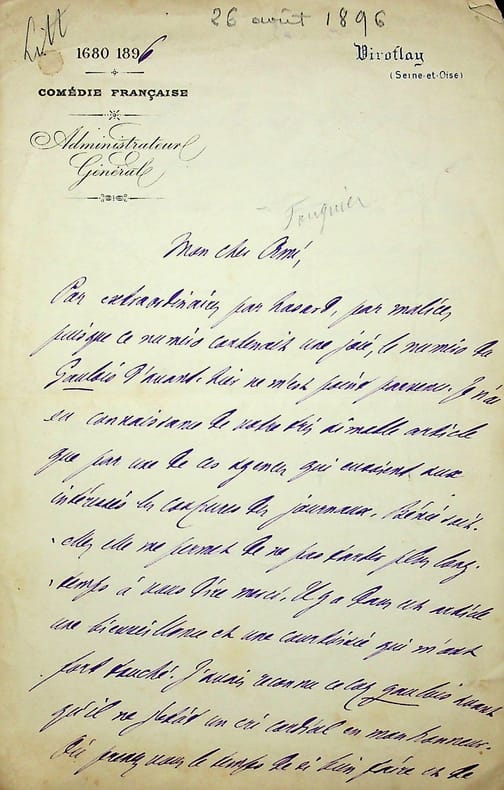 Litt
26 août 1896
1680 1896
Viroflay
(Seine-et-Oise)
COMÉDIE FRANÇAISE
Administrateur
Général
Fouquier
Mon cher Ami,
Par extraordinaire, par hasard, par malice,
puisque ce numéro contenait une joie, le numéro du
Gaulois d'avant-hier ne m'est point parvenu. Je n'ai
eu connaissance de votre très aimable article
que par une de ces agences qui envoient aux
intéressés les coupures des journaux. Bénie soit-
elle, elle me permet de ne pas tarder plus long-
temps à vous dire merci. Il y a dans cet article
une bienveillance et une courtoisie qui m'ont
fort touché. J'avais reconnu ce coq gaulois avant
qu'il ne jetât un cri cordial en mon honneur.
Où prenez-vous le temps de si bien faire et de